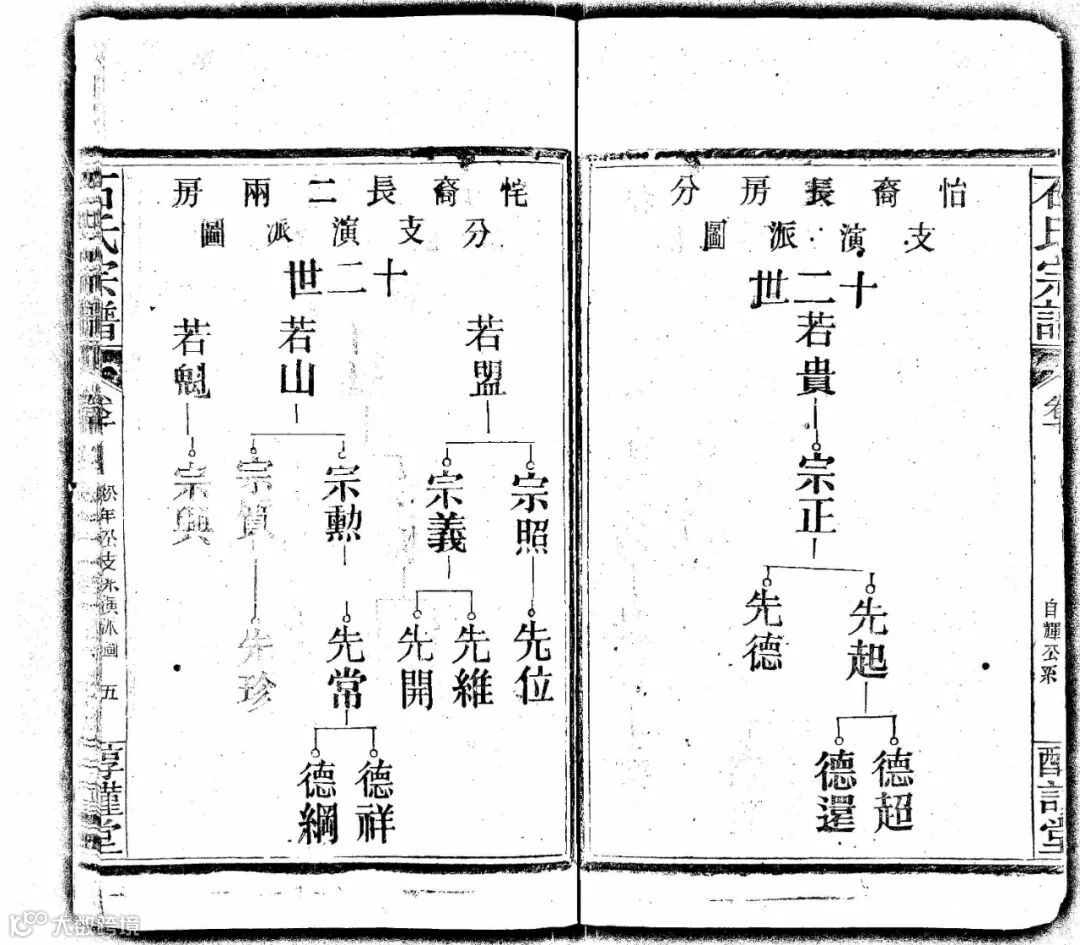 怡裔長房分
支演派圖
十二世
若貴
宗正
先起
先德
德超
德還
自輝公系
石氏宗譜
卷
堂
恠裔長二兩房
分支演派圖
十二世
若盟
若山
若魁
宗照
宗義
宗勲
宗貲
宗興
先位
先維
先開
先常
先珍
德祥
德綱
石氏宗譜
五
淳謹堂
大数跨境